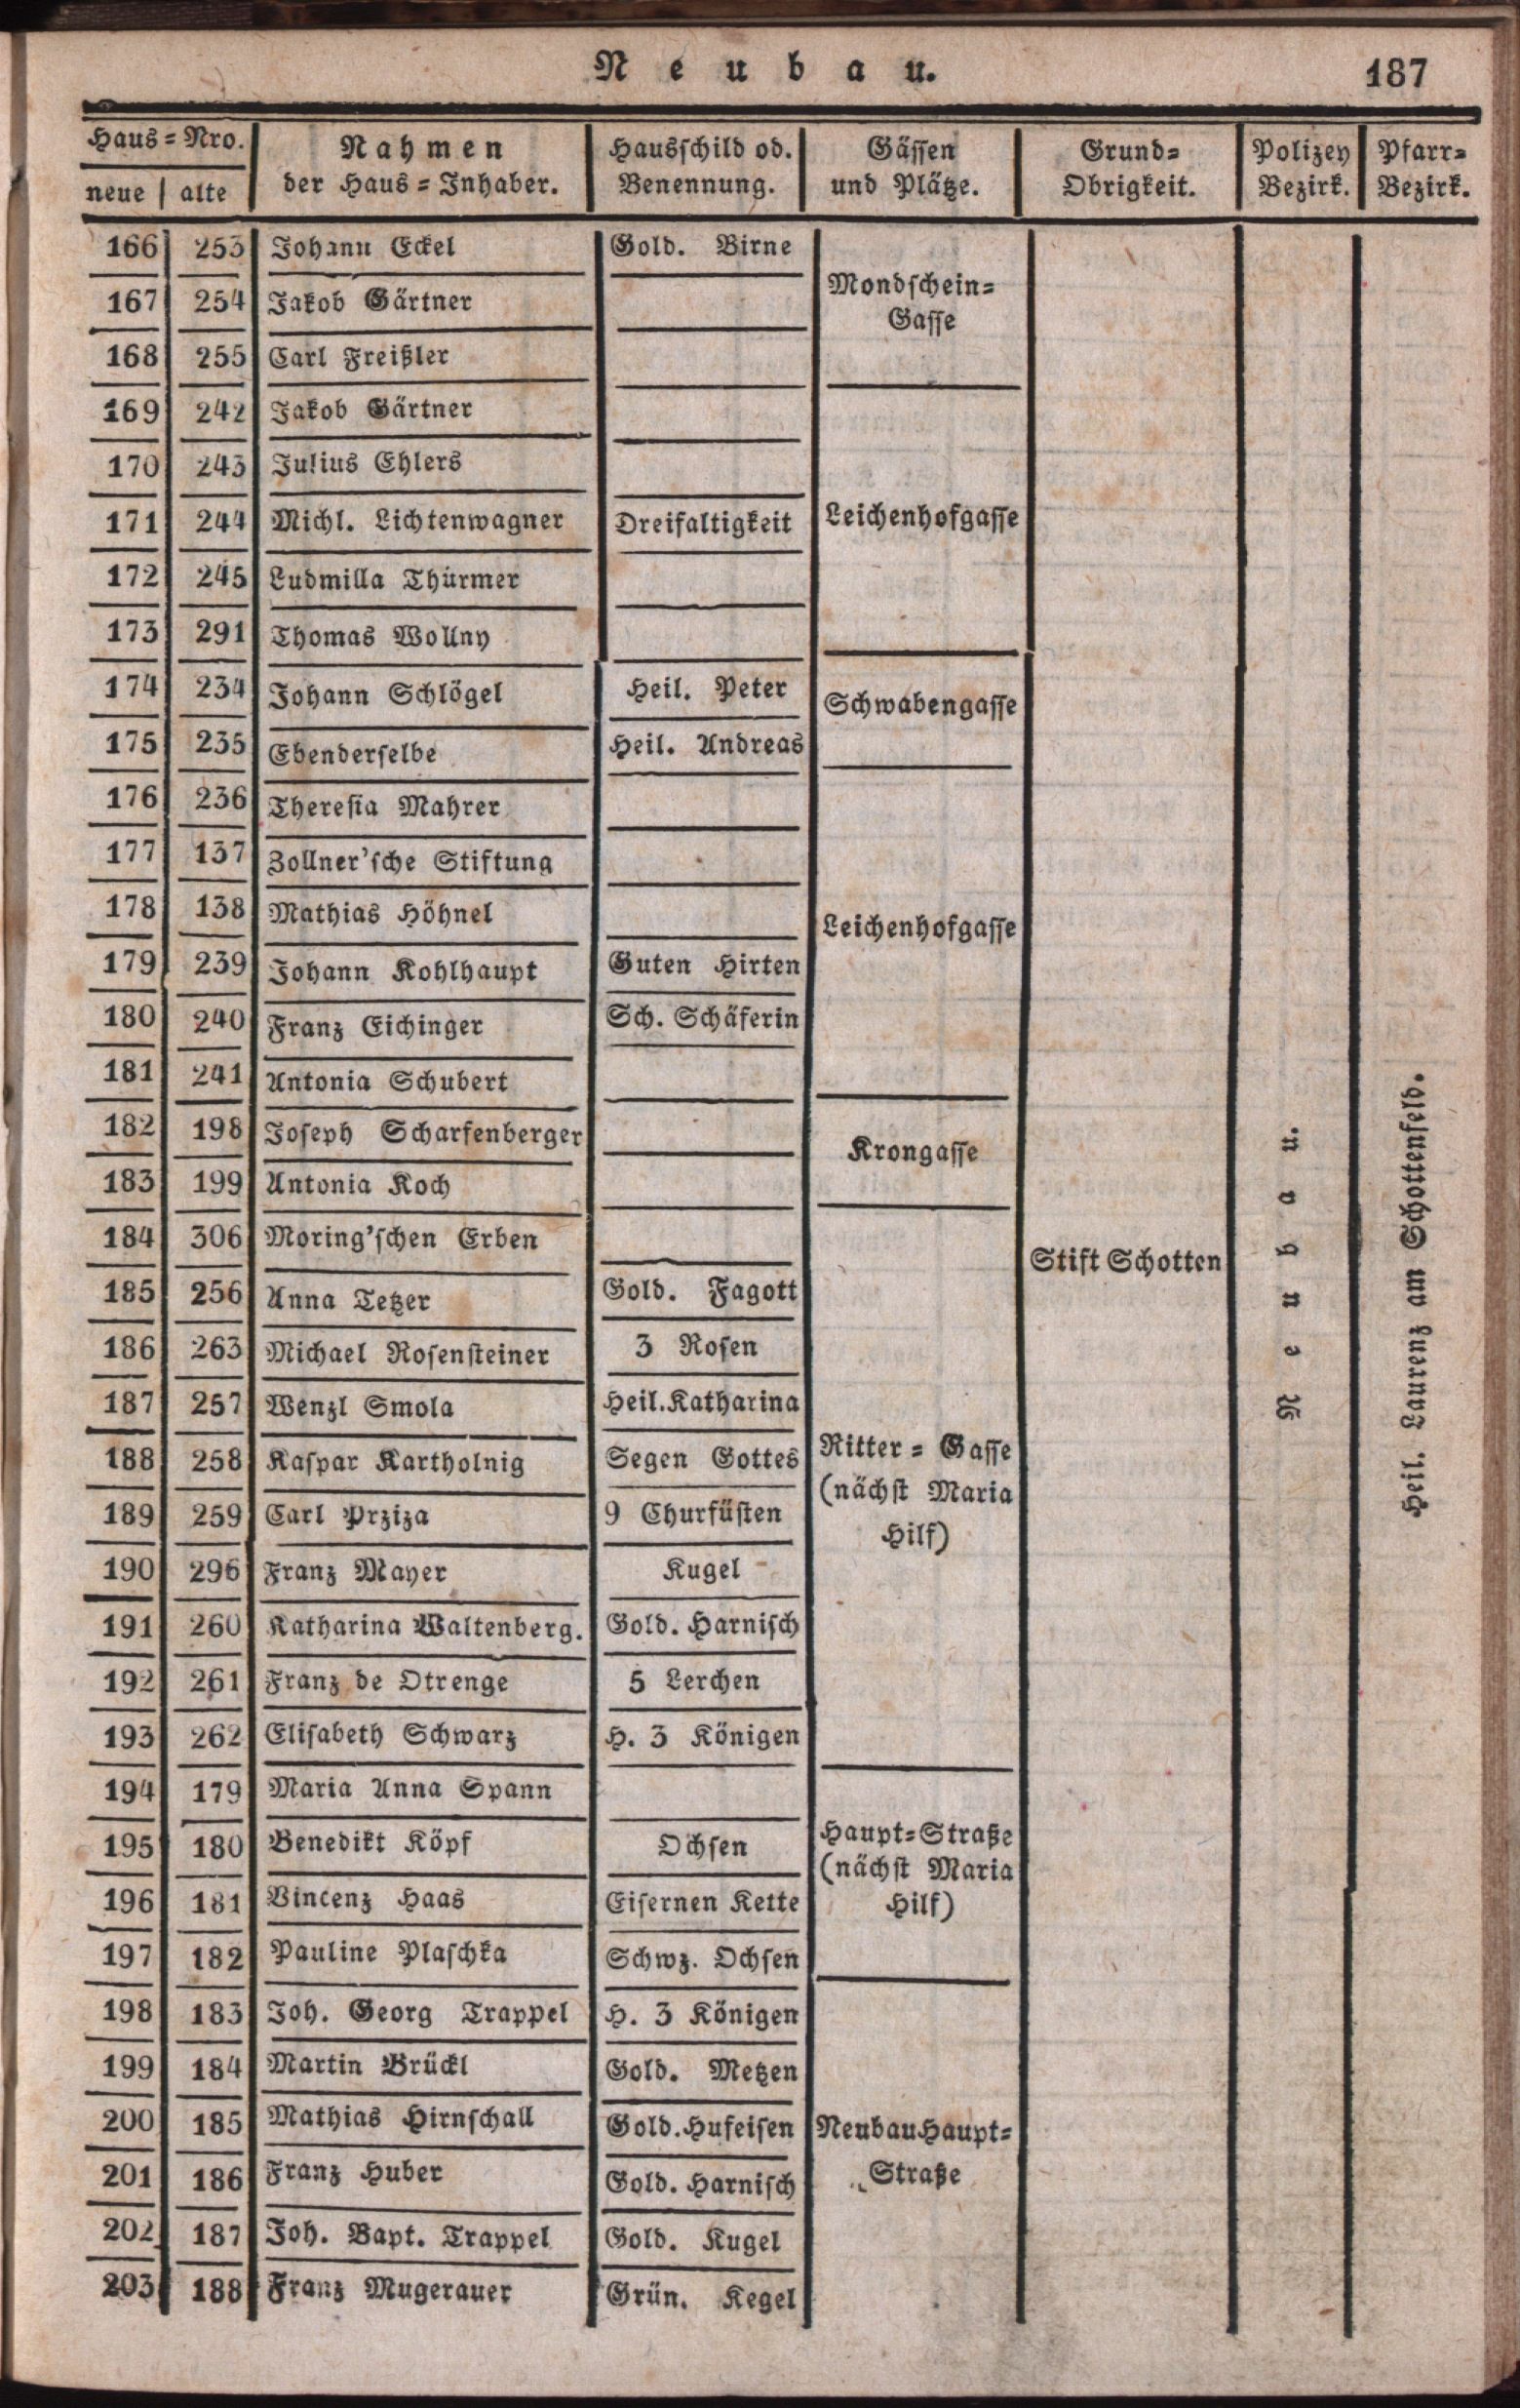 Neubau.
187
Haus=Nro.
neue | alte
Nahmen
der Haus=Inhaber.
Hausschild od.
Benennung.
Gässen
und Plätze.
Grund=
Obrigkeit.
Polizey
Bezirk.
Pfarr=
Bezirk.
166 253 Johann Eckel Gold. Birne
Mondschein=
167 254 Jakob Gärtner
Gasse
168 255 Carl Freißler
169 242 Jakob Gärtner
170 243 Julius Ehlers
171 244 Michl. Lichtenwagner Dreifaltigkeit Leichenhofgasse
172 245 Ludmilla Thürmer
173 291 Thomas Wollny
174 234 Johann Schlögel Heil. Peter Schwabengasse
175 235 Ebenderselbe Heil. Andreas
176 236 Theresia Mahrer
177 137 Zollner'sche Stiftung
178 138 Mathias Höhnel Leichenhofgasse
179 239 Johann Kohlhaupt Guten Hirten
180 240 Franz Eichinger Sch. Schäferin
181 241 Antonia Schubert
182 198 Joseph Scharfenberger Krongasse
183 199 Antonia Koch
184 306 Moring'schen Erben Stift Schotten
185 256 Anna Tetzer Gold. Fagott
186 263 Michael Rosensteiner 3 Rosen
187 257 Wenzl Smola Heil. Katharina
188 258 Kaspar Kartholnig Segen Gottes Ritter=Gasse
(nächst Maria
189 259 Carl Prziza 9 Churfüsten
Hilf)
190 296 Franz Mayer Kugel
191 260 Katharina Waltenberg. Gold. Harnisch
192 261 Franz de Otrenge 5 Lerchen
193 262 Elisabeth Schwarz H. 3 Königen
194 179 Maria Anna Spann
195 180 Benedikt Köpf Ochsen Haupt=Straße
(nächst Maria
196 181 Vincenz Haas Eisernen Kette Hilf)
197 182 Pauline Plaschka Schwz. Ochsen
198 183 Joh. Georg Trappel H. 3 Königen
199 184 Martin Brückl Gold. Metzen
200 185 Mathias Hirnschall Gold. Hufeisen Neubau Haupt=
201 186 Franz Huber Gold. Harnisch Straße
202 187 Joh. Bapt. Trappel Gold. Kugel
203 188 Franz Mugerauer Grün. Kegel
Neubau.
Heil. Laurenz am Schottenfeld.